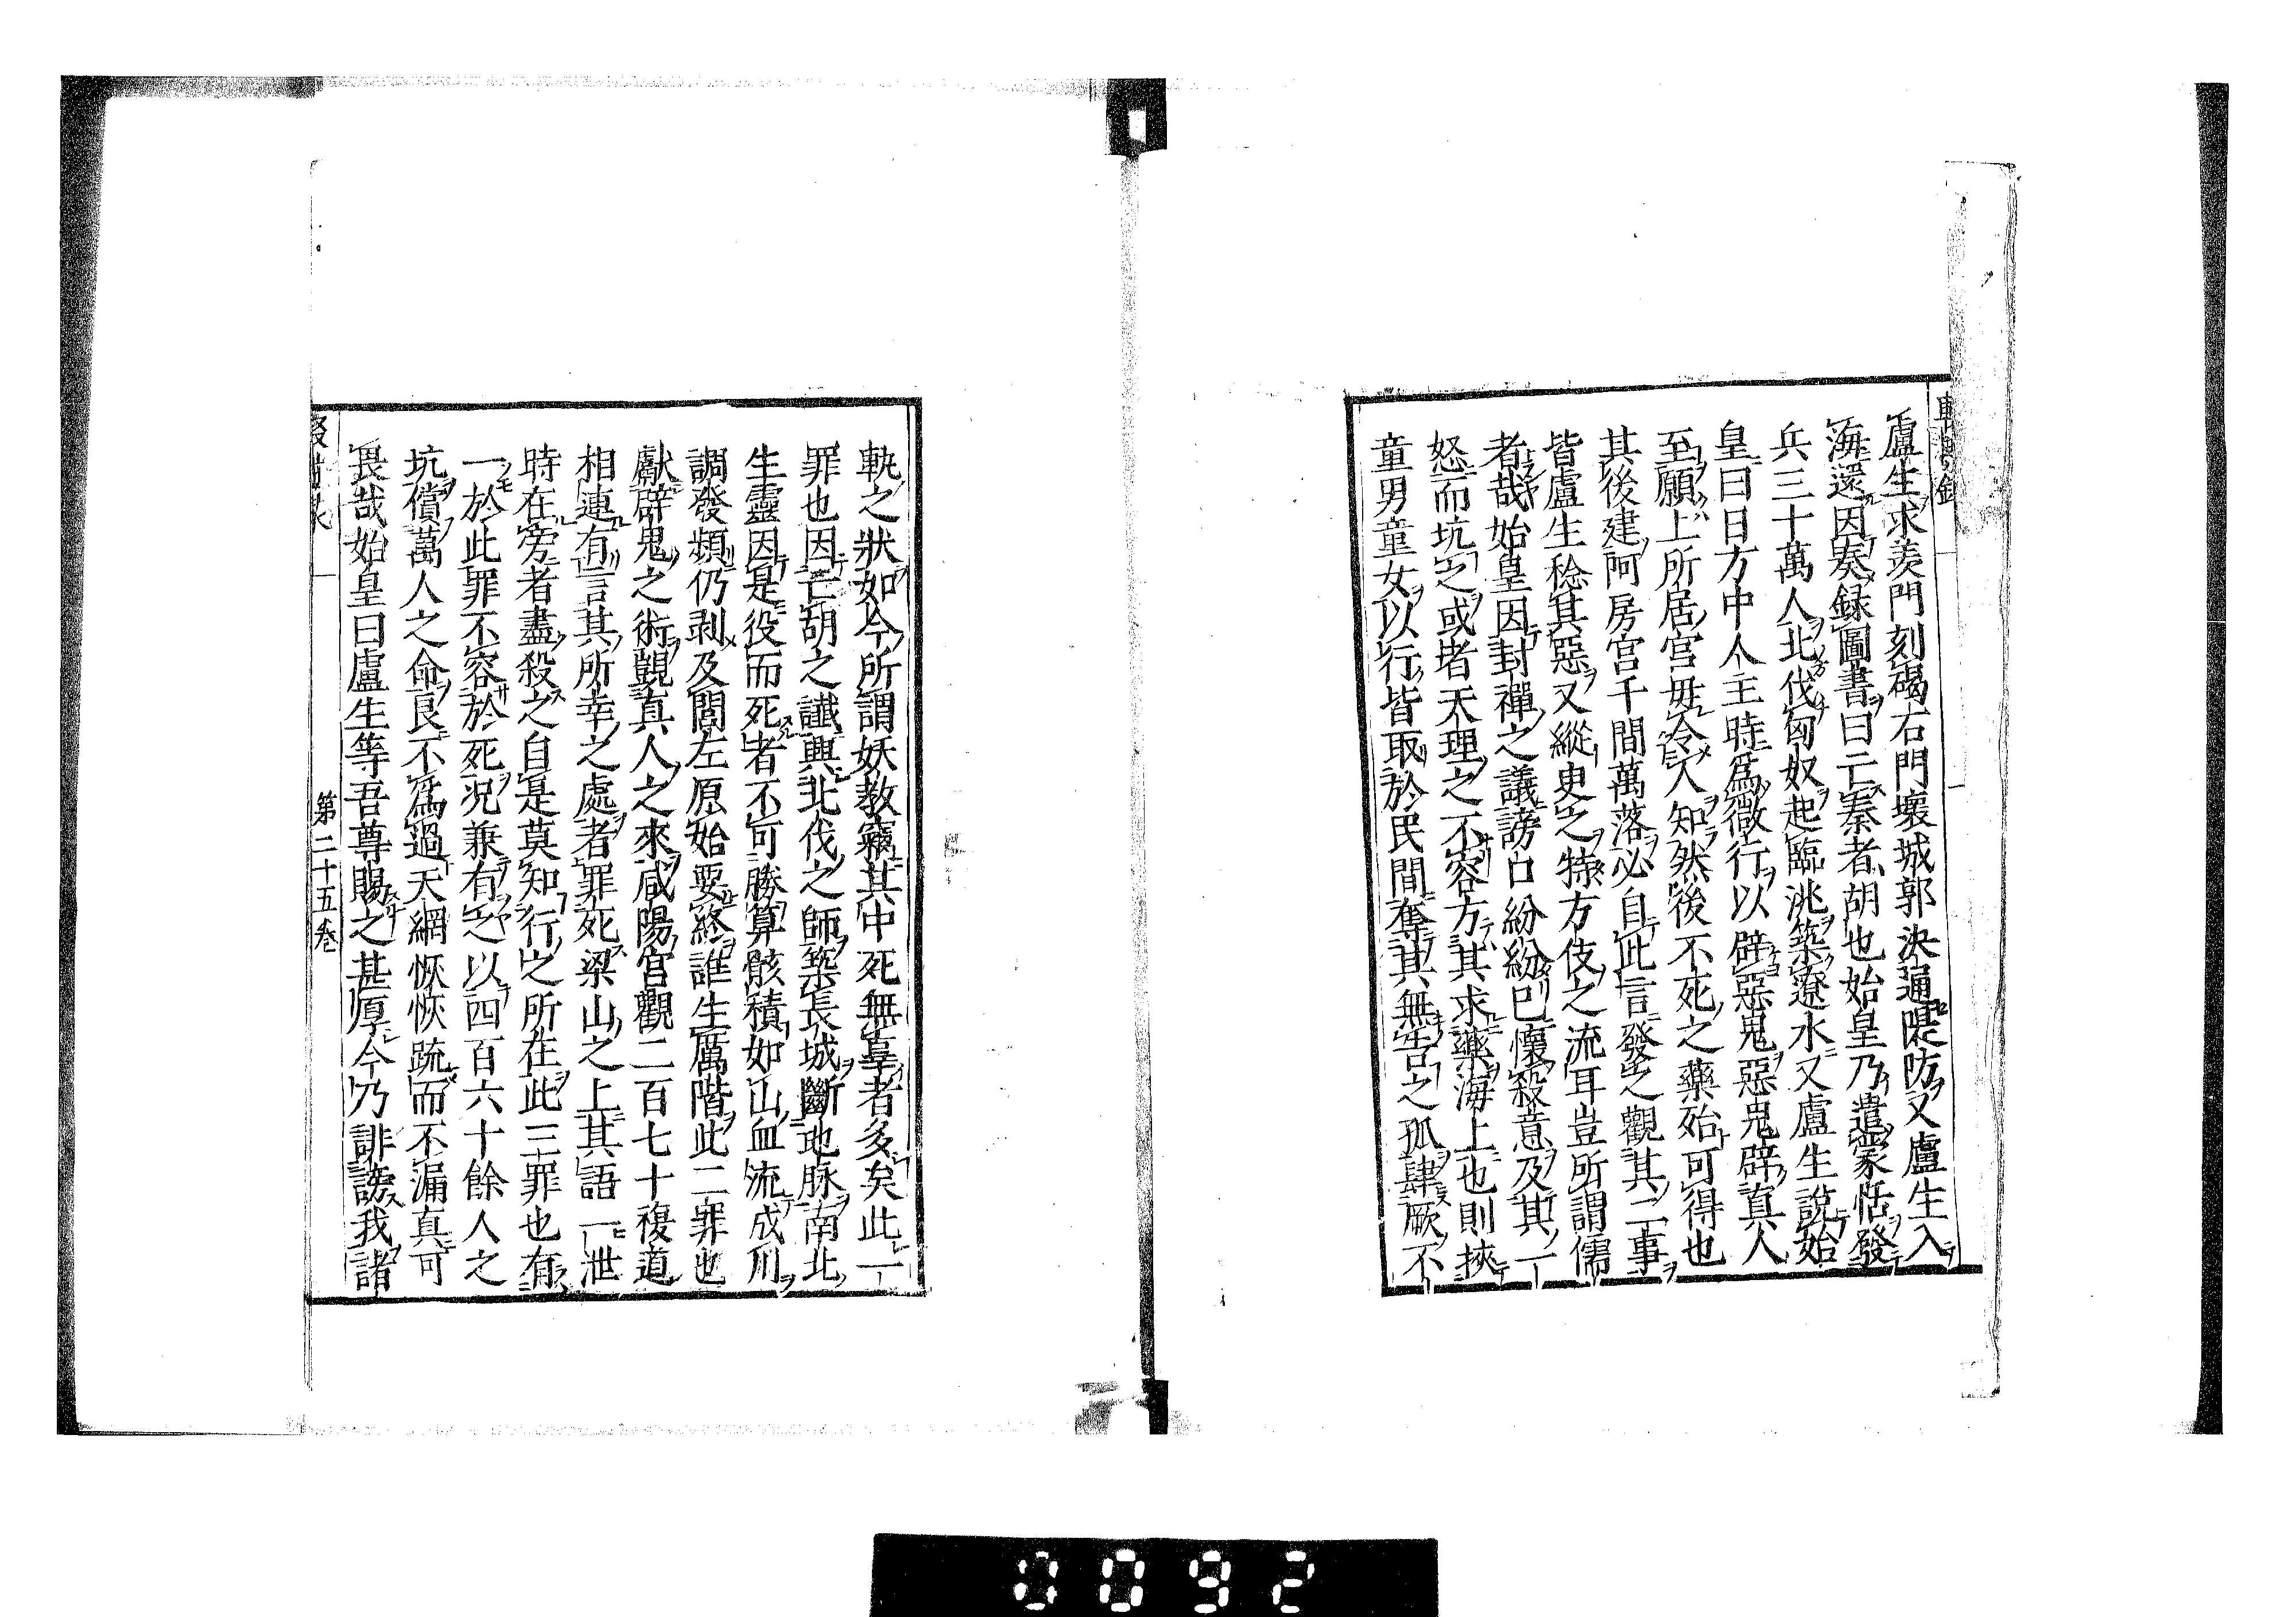 盧生求羨門刻碣石門壞城郭決通隄防又盧生入
海還因奏録圖書曰亡秦者胡也始皇乃遣蒙恬發
兵三十萬人北伐匈奴起臨洮築遼水又盧生說始
皇曰日方中人主時爲微行以辟惡鬼惡鬼辟真人
至願上所居宮毋令人知然後不死之藥殆可得也
其後建阿房宮千間萬落必自此言發之觀其二事
皆盧生稔其惡又縱臾之特方伎之流耳豈所謂儒
者哉始皇因封禪之議謗口紛紛已懷殺意及其一
怒而坑之或者天理之不容方其求藥海上也則挾
童男童女以行皆取於民間奪其無告之孤肆厥不
軌之狀如今所謂妖教竊其中死無辜者多矣此一
罪也因亡胡之讖興北伐之師築長城斷地脉南北
生靈因是役而死者不可勝算骸積如山血流成川
調發頻仍剥及閭左原始要終誰生厲階此二罪也
獻辟鬼之術覬真人之來咸陽宮觀二百七十複道
相連有言其所幸之處者罪死梁山之上其語一泄
時在旁者盡殺之自是莫知行之所在此三罪也有
一於此罪不容於死況兼有之以四百六十餘人之
坑償萬人之命良不爲過天網恢恢疏而不漏真可
畏哉始皇曰盧生等吾尊賜之甚厚今乃誹謗我諸
第二十五卷
0092